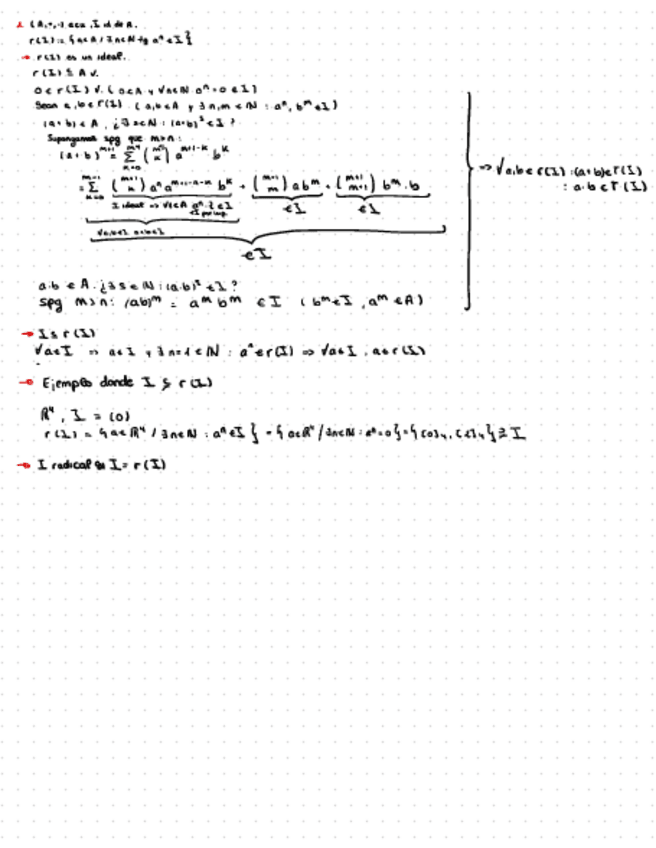 1 (A,+,·) aca, I id de A.
r(I) = {a∈A / ∃n∈N tq aⁿ∈I}
→ r(I) es un ideal.
r(I) ⊆ A ✓.
0 ∈ r(I) ✓. (0∈A y ∀n∈N 0ⁿ=0 ∈ I)
Sean a,b∈r(I). (a,b∈A y ∃n,m∈N : aⁿ, bᵐ∈I)
(a+b)∈A, ¿∃s∈N : (a+b)ˢ∈I?
Supongamos spg que m>n:
(a+b)ᵐ⁺¹ = Σ_{k=0}^{m+1} (m+1 k) a^{m+1-k} b^k
= Σ_{k=0}^{m-1} (m+1 k) aⁿ a^{m+1-n-k} b^k + (m+1 m) a bᵐ + (m+1 m+1) bᵐ·b
⇒ ∀a,b∈r(I) : (a+b)∈r(I)
: a·b∈r(I)
I ideal ⇒ ∀z∈A aⁿ·z∈I
∈I ∈I
∀a,b∈I a+b∈I
∈I
a·b ∈ A. ¿∃s∈N : (a·b)ˢ∈I?
spg m>n: (ab)ᵐ = aᵐ bᵐ ∈ I (bᵐ∈I, aᵐ∈A)
→ I ⊆ r(I)
∀a∈I ⇒ a∈I y ∃n=1∈N : aⁿ∈r(I) ⇒ ∀a∈I, a∈r(I)
→ Ejemplo donde I ⊊ r(I)
I = (0)
→ I radical si I = r(I)